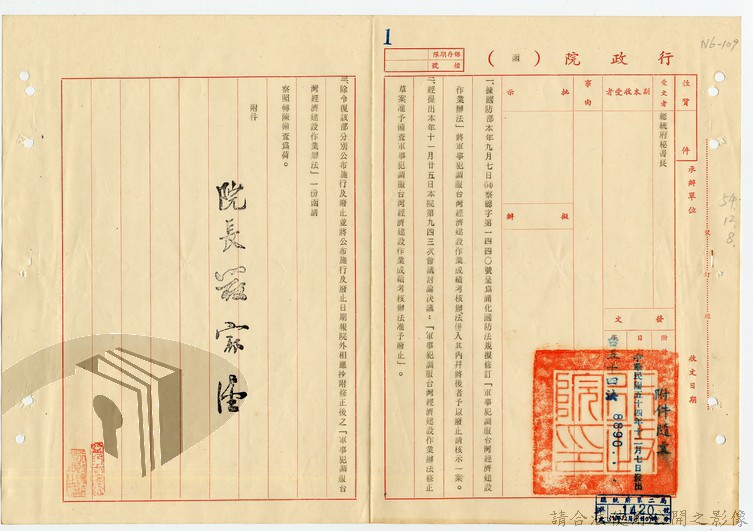 N6-109
1
行政院（函）
保存期限
檔號
性質
件
受文者
總統府秘書長
副本收受者
事由
批示
擬辦
發文
附件隨文
中華民國五十四年十二月七日發出
台五十四法 8890
承辦單位
收文日期
54.12.8.
一、據國防部本年九月七日(54)察總字第一四四〇號呈為簡化國防法規擬修訂「軍事犯調服台灣經濟建設
作業辦法」將軍事犯調服台灣經濟建設作業成績考核辦法併入其內并將後者予以廢止請核示一案。
二、經提出本年十一月廿五日本院第九四三次會議討論決議：「軍事犯調服台灣經濟建設作業辦法修正
草案准予備查軍事犯調服台灣經濟建設作業成績考核辦法准予廢止」。
三、除令復該部分別公布施行及廢止並將公布施行及廢止日期報院外相應抄附修正後之「軍事犯調服台
灣經濟建設作業辦法」一份函請
察照轉陳備查為荷。
附件
院長 嚴家淦
行政院印
總統府第二局
1420
請合法使用公開之影像